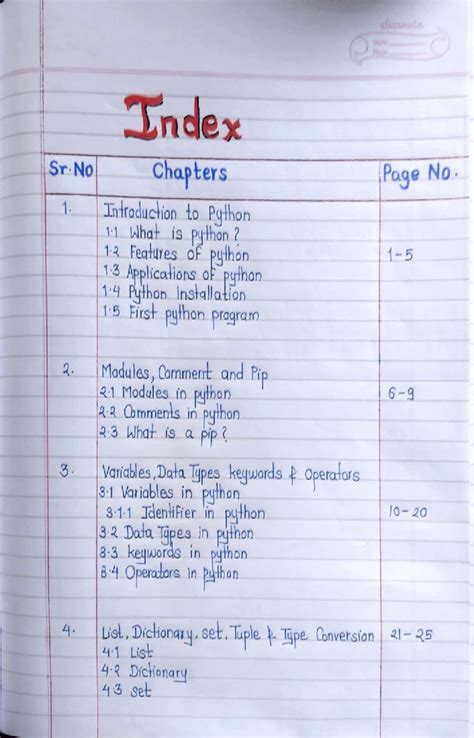 classmate
Date
Page
Index
Sr.No Chapters Page No.
1. Introduction to Python
1.1 What is python?
1.2 Features of python 1-5
1.3 Applications of python
1.4 Python Installation
1.5 First python program
2. Modules, Comment and Pip
2.1 Modules in python 6-9
2.2 Comments in python
2.3 What is a pip?
3. Variables, Data Types, keywords & Operators
3.1 Variables in python
3.1.1 Identifier in python 10-20
3.2 Data Types in python
3.3 keywords in python
3.4 Operators in python
4. List, Dictionary, set, Tuple & Type Conversion 21-25
4.1 List
4.2 Dictionary
4.3 set